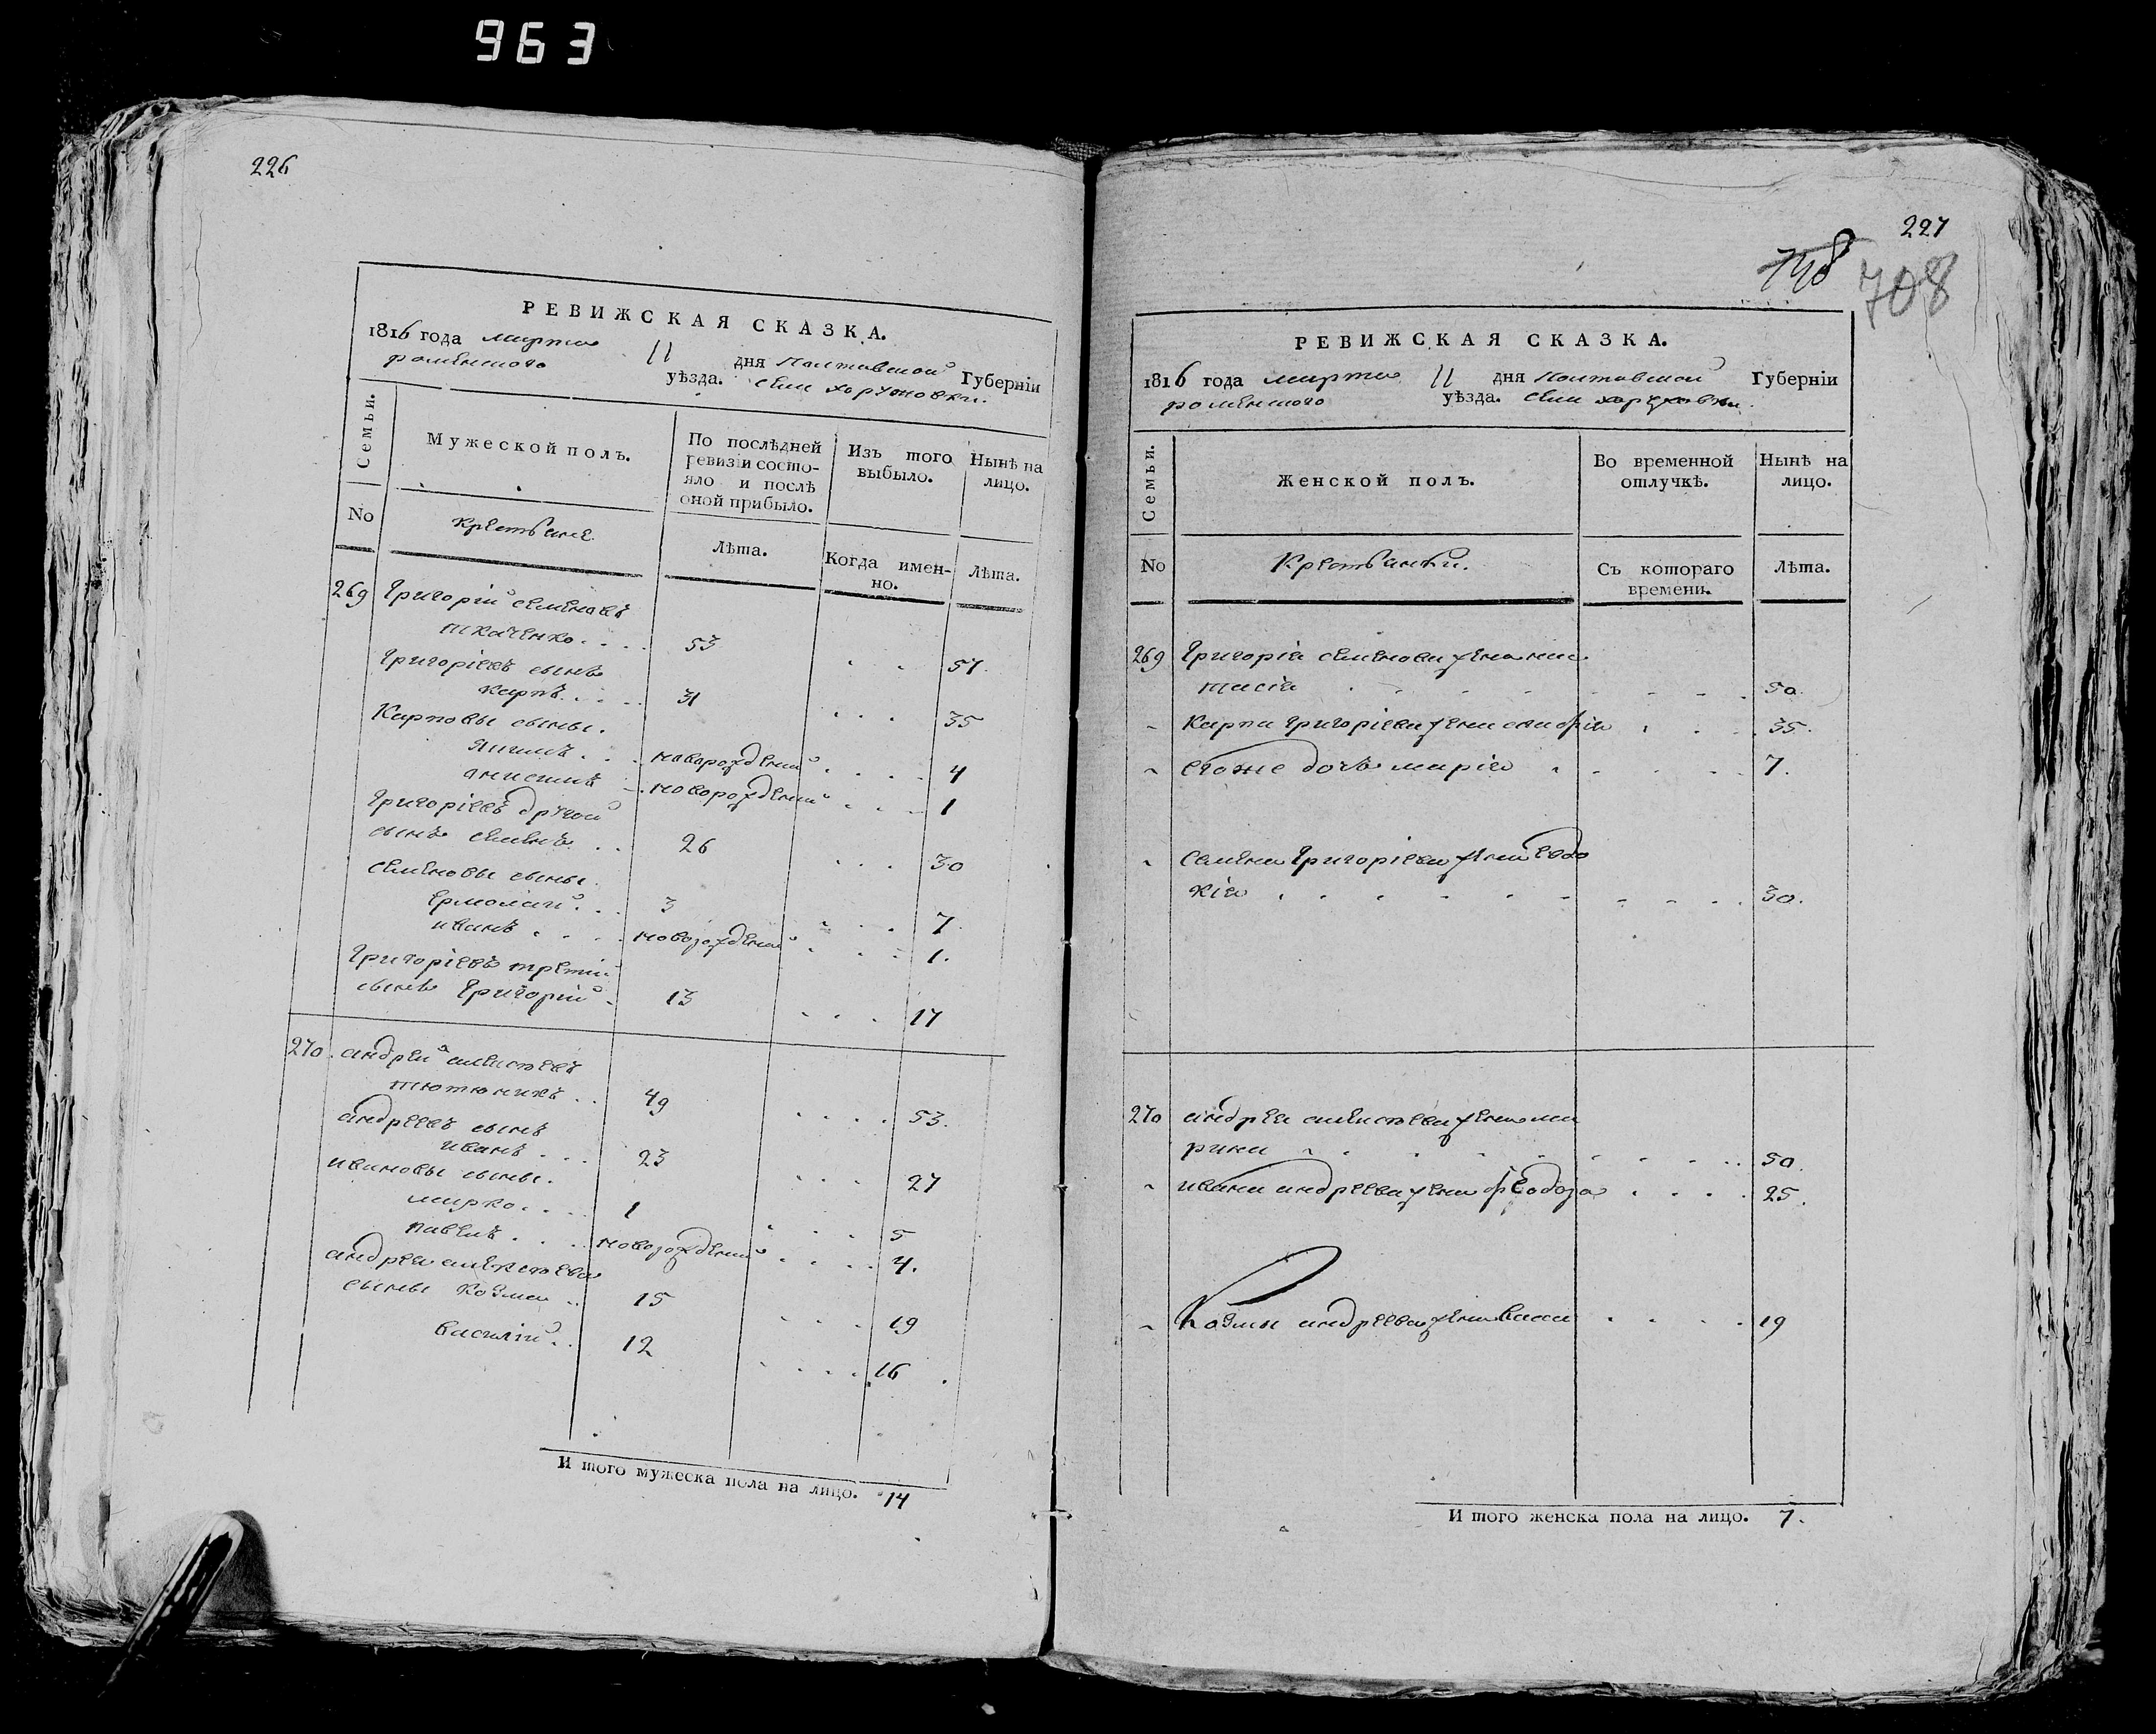 963
226
РЕВИЖСКАЯ СКАЗКА.
1816 года марта 11 дня Полтавской Губерніи
роменского уѣзда. села хоружовки.
Семьи.
Мужеской полъ.
По послѣдней ревизіи состояло и послѣ оной прибыло.
Изъ того выбыло.
Нынѣ на лицо.
No
крестьяне
Лѣта.
Когда именно.
Лѣта.
269 Григорій семеновъ
ткаченко . . . . 53 . . 57.
Григоріевъ сынъ
карпъ . . . . 31 . . . 35
Карповы сыны.
. . . новорожденый . . . . 4
анисимъ . . новорожденый . . . 1
Григоріевъ другой
сынъ семенъ . . 26 . . . 30
семеновы сыны.
Ермолай . . . 3 . . . 7
иванъ . . . . новорожденый . . . 1.
Григоріевъ третій
сынъ Григорій . 13 . . . 17
270. андрей алексѣевъ
тютюникъ . . 49 . . . 53.
андреевъ сынъ
иванъ . . . 23 . . . 27
ивановы сыны.
марко . . . . 1 . . . 5
павелъ . . . . новорожденый . . . . 4.
андрея алексѣева
сыны козма . . 15 . . . 19
василій . . 12 . . . . 16
И того мужеска пола на лицо. 14
227
708
РЕВИЖСКАЯ СКАЗКА.
1816 года марта 11 дня Полтавской Губерніи
роменского уѣзда. села хоружовки.
Семьи.
Женской полъ.
Во временной отлучкѣ.
Нынѣ на лицо.
No
Крестьянки.
Съ котораго времени.
Лѣта.
269 Григорія семенова жена нас
тасія . . . . . . . 50.
- Карпа Григоріева жена . . . 35.
- егоже дочь марія . . . . . 7.
- семена Григоріева жена евдо
кія . . . . . . . . . 30.
270 андрея алексѣева жена ма
рина . . . . . . . . . 50.
- ивана андреева жена феодозія . . . . 25.
- Козмы андреева жена васа . . . . 19
И того женска пола на лицо. 7.